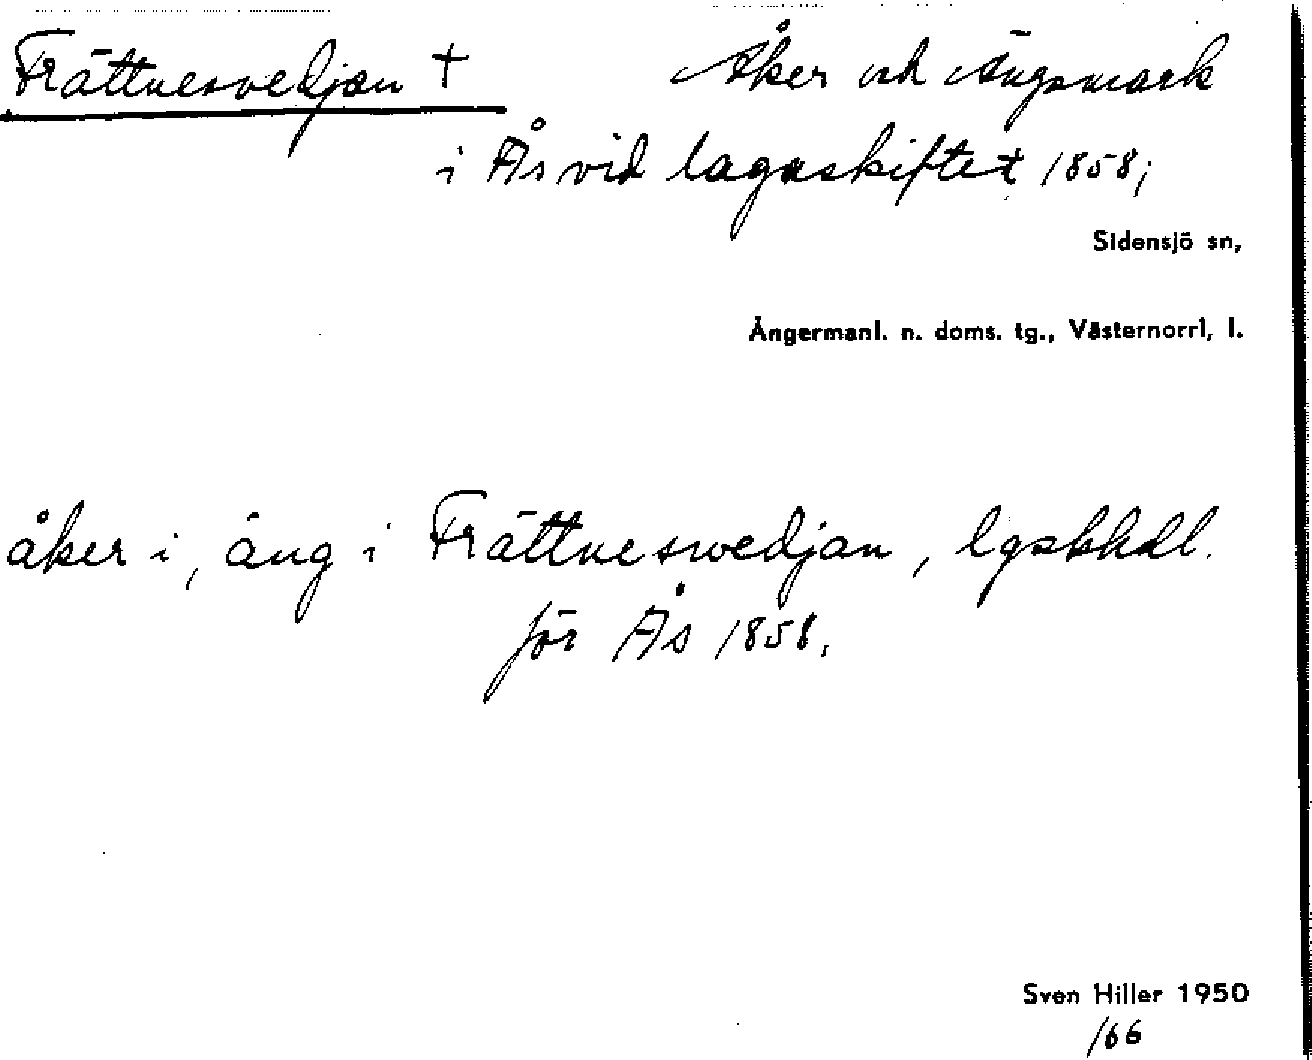 Frättnesvedjan † Åker och Ängsmark
i Ås vid lagaskiftet 1858;
Sidensjö sn,
Ångermanl. n. doms. tg., Västernorrl, l.
åker i, äng i Frättneswedjan, lgskhdl.
för Ås 1858.
Sven Hiller 1950
/66